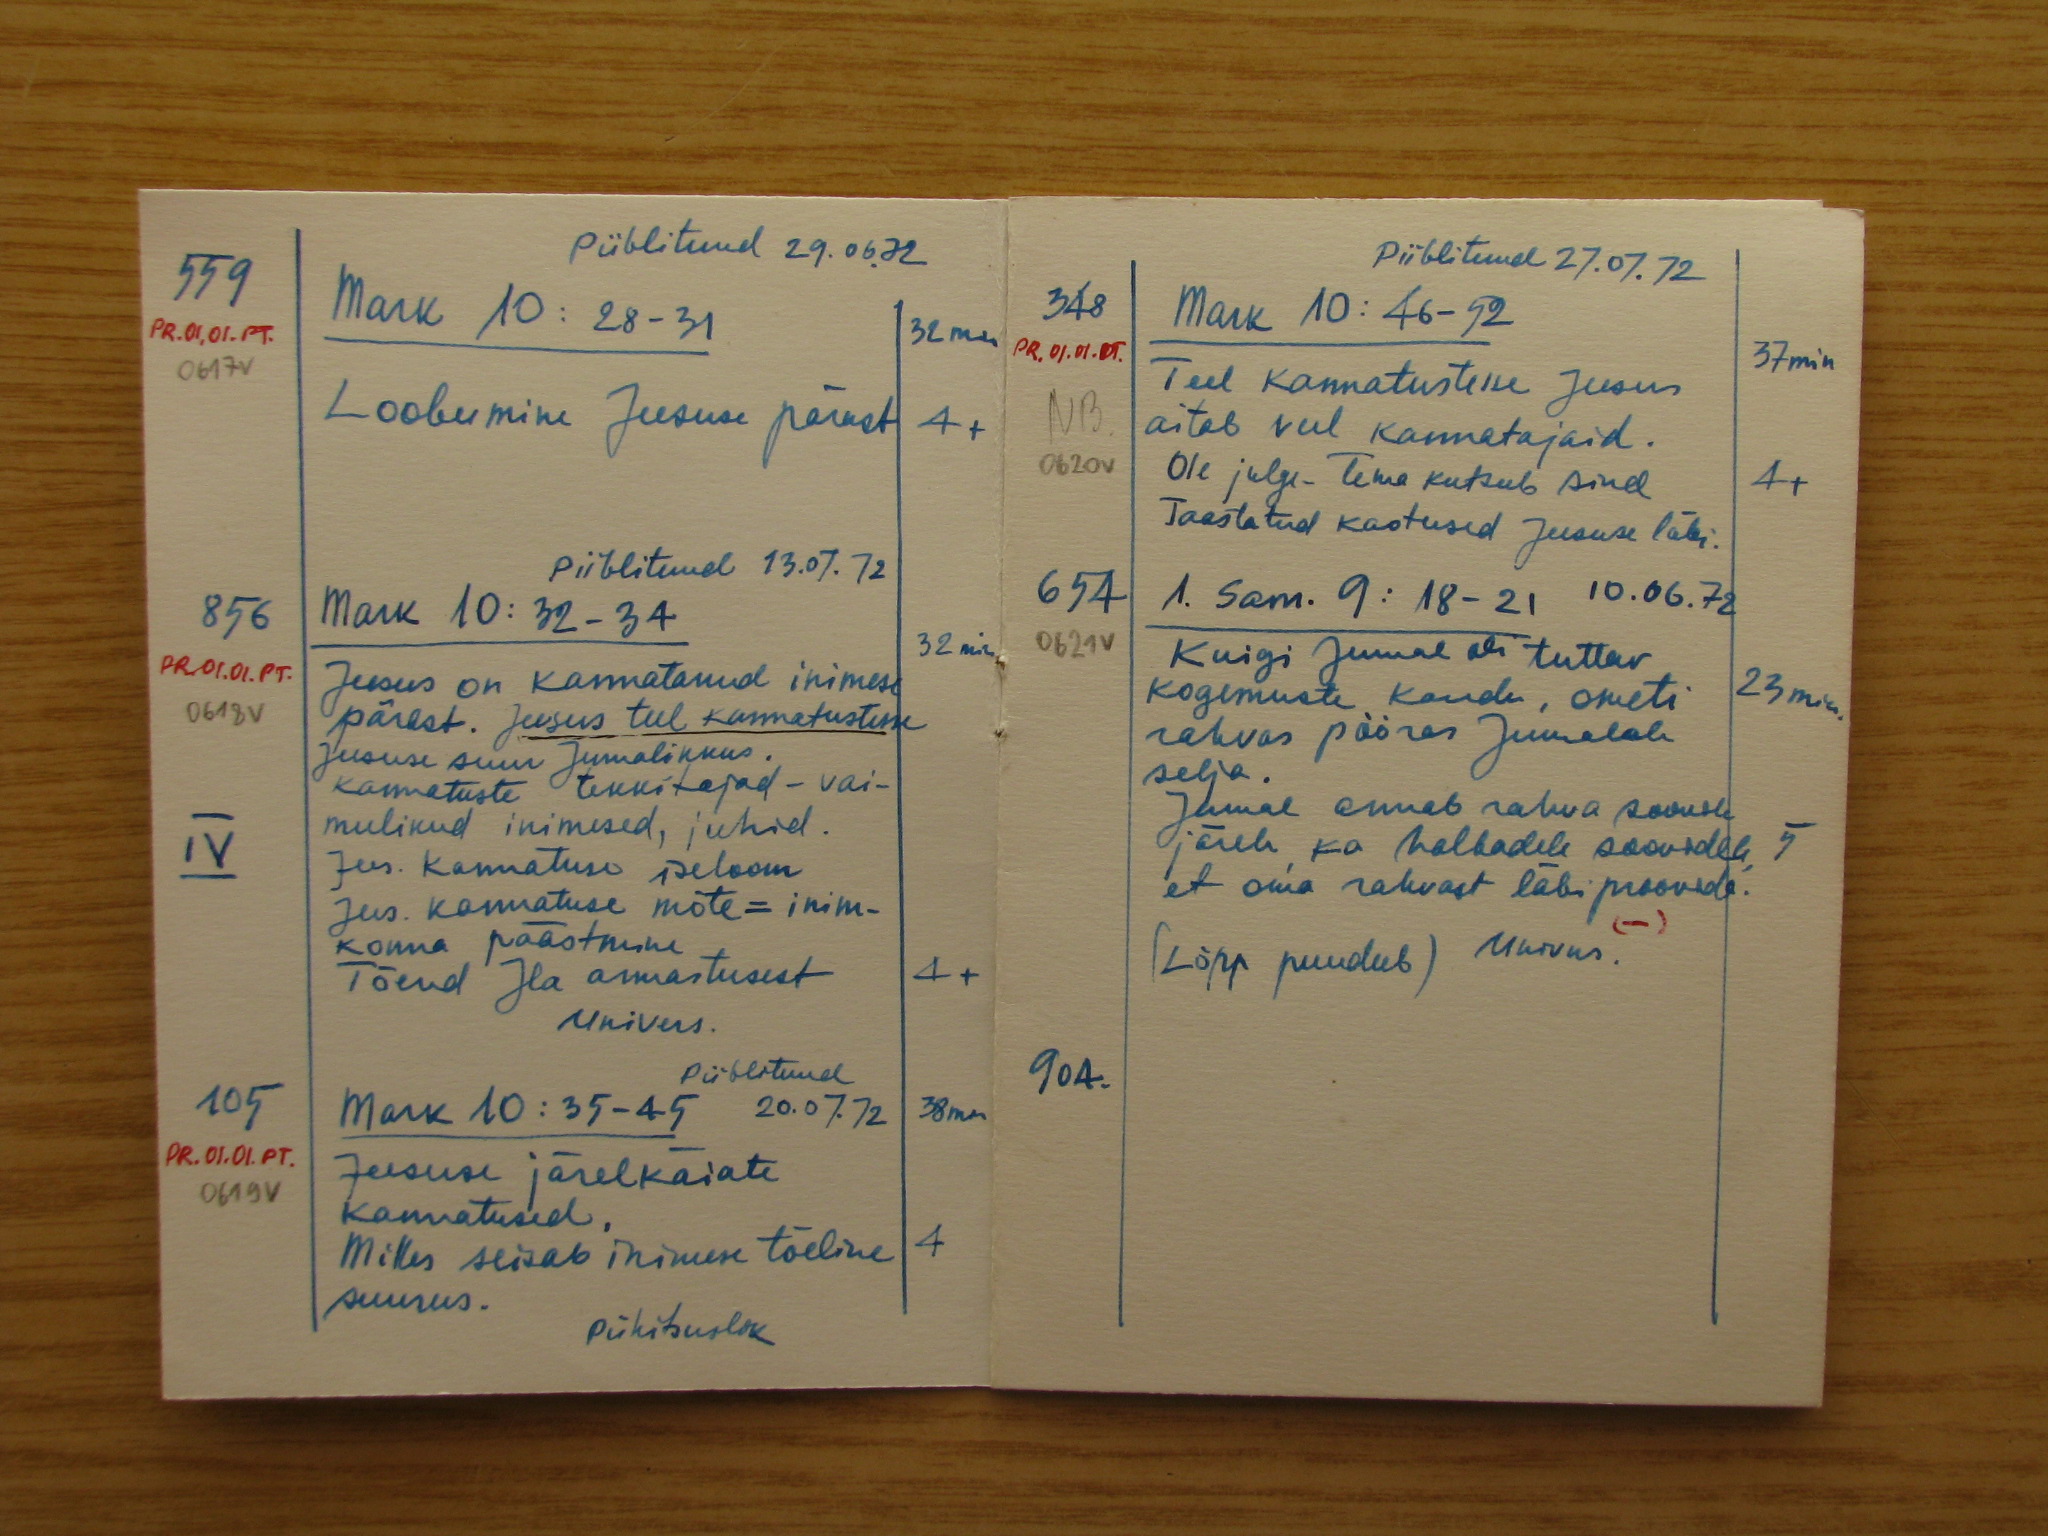 Piiblitund 29.06.72
559
Mark 10: 28-31
32 min
PR.01.01.PT.
0617V
Loobumine Jeesuse pärast
4+
Piiblitund 13.07.72
856
Mark 10: 32-34
32 min.
PR.01.01.PT.
0618V
Jeesus on kannatanud inimese
pärast. Jeesus teel kannatustesse
Jeesuse suur Jumalikkus.
kannatuste tekkitajad - vai-
mulikud inimesed, juhid.
IV
Jees. kannatuse iseloom
Jees. kannatuse mõte = inim-
konna päästmine
Tõend Jla armastusest
4+
Univers.
Piiblitund
105
Mark 10: 35-45
20.07.72
38 min
PR.01.01.PT.
0619V
Jeesuse järelkäiate
kannatused.
Milles seisab inimese tõeline
4
suurus.
Pühitsuslik
Piiblitund 27.07.72
348
Mark 10: 46-52
PR.01.01.PT.
37 min
Teel kannatustesse Jeesus
NB.
aitab veel kannatajaid.
0620V
Ole julge - Tema kutsub sind
4+
Taastatud kaotused Jeesuse läbi.
654
1. Sam. 9: 18-21 10.06.72
0621V
Kuigi Jumal oli tuttav
kogemuste kaudu, ometi
23 min.
rahvas pööras Jumalale
selja.
Jumal annab rahva soovide
järele, ka halbadele soovidele,
5
et oma rahvast läbi proovida.
(-)
(Lõpp puudub) Univers.
904.